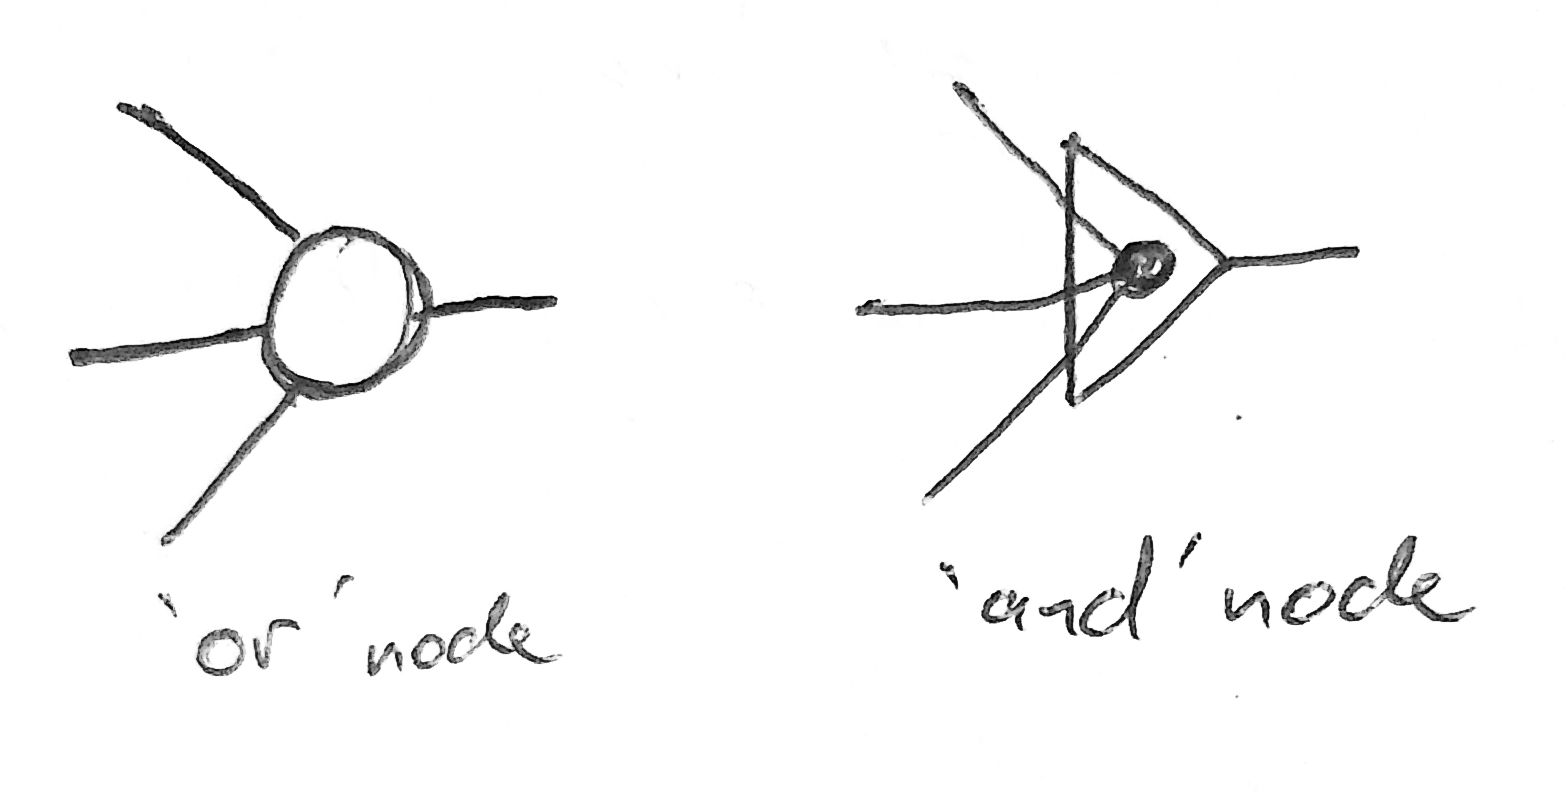 'or' node
'and' node